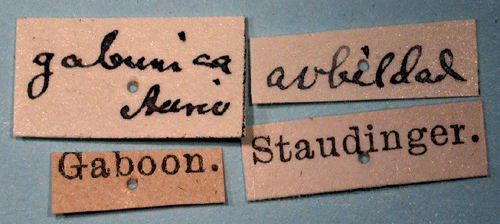 gabunica
Auriv
avbildad
Gaboon.
Staudinger.